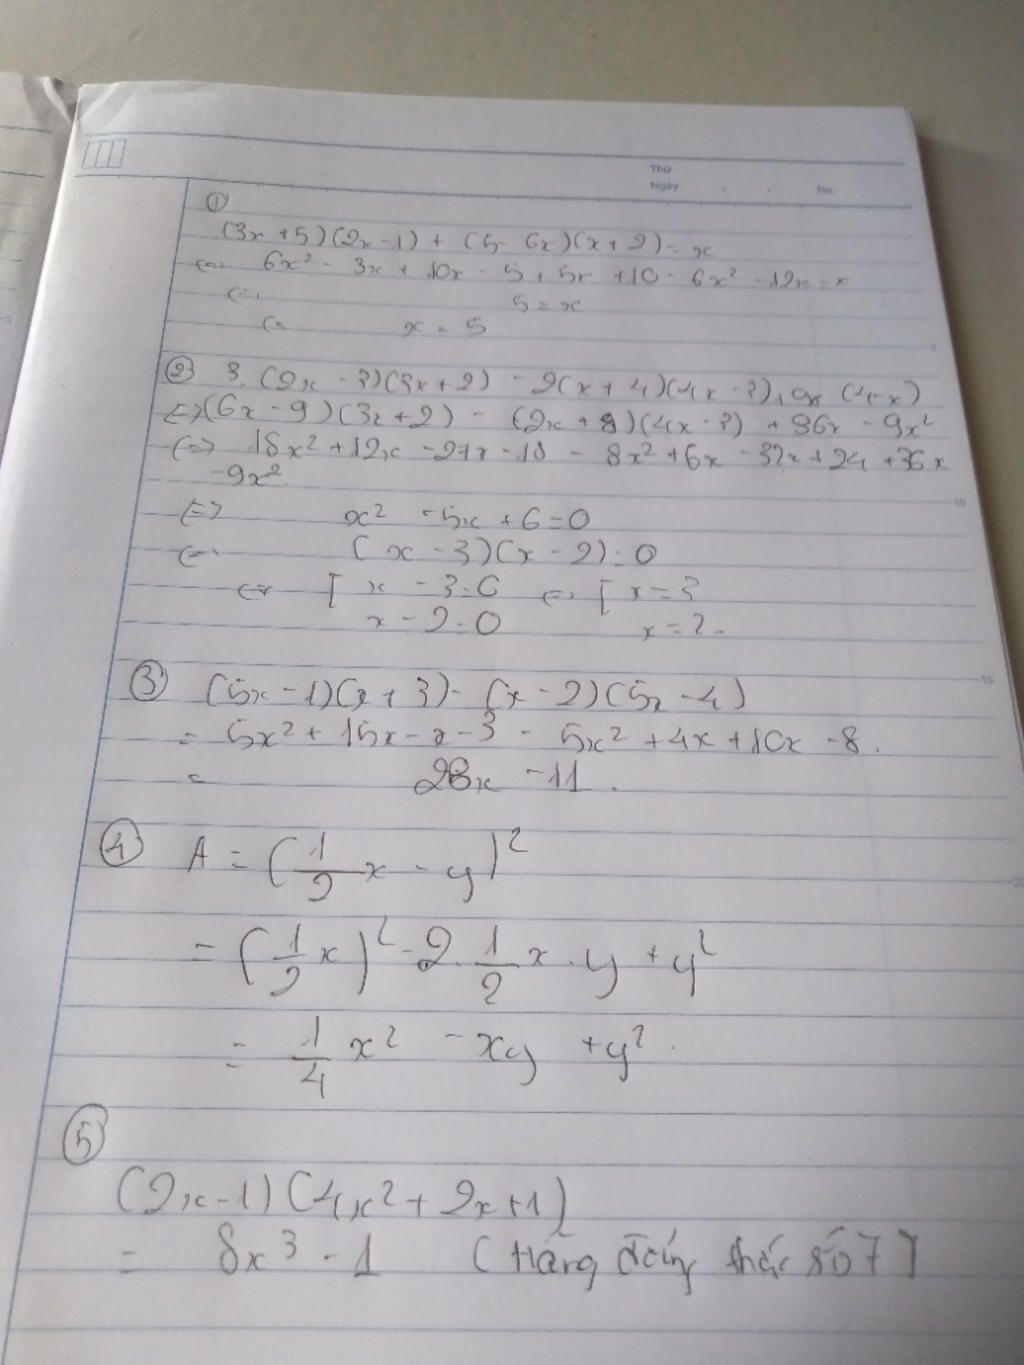 Thứ
Ngày . . No.
①
(3x + 5)(2x - 1) + (5 - 6x)(x + 2) = x
<=> 6x² - 3x + 10x - 5 + 5x + 10 - 6x² - 12x = x
<=> 5 = x
<= x = 5
② 3.(2x - 3)(3x + 2) - 2(x + 4)(4x - 3) + 9x (4 - x)
<=> (6x - 9)(3x + 2) - (2x + 8)(4x - 3) + 36x - 9x²
<=> 18x² + 12x - 27x - 18 - 8x² + 6x - 32x + 24 + 36x
- 9x²
<=> x² - 5x + 6 = 0
<=> (x - 3)(x - 2) = 0
<=> [ x - 3 = 0 <=> [ x = 3
x - 2 = 0 x = 2.
③ (5x - 1)(x + 3) - (x - 2)(5x - 4)
= 5x² + 15x - x - 3 - 5x² + 4x + 10x - 8.
= 28x - 11.
④ A = (1/2 x - y)²
= (1/2 x)² - 2.1/2 x.y + y²
= 1/4 x² - xy + y².
⑤
(2x - 1)(4x² + 2x + 1)
= 8x³ - 1 (Hằng đẳng thức số 7)